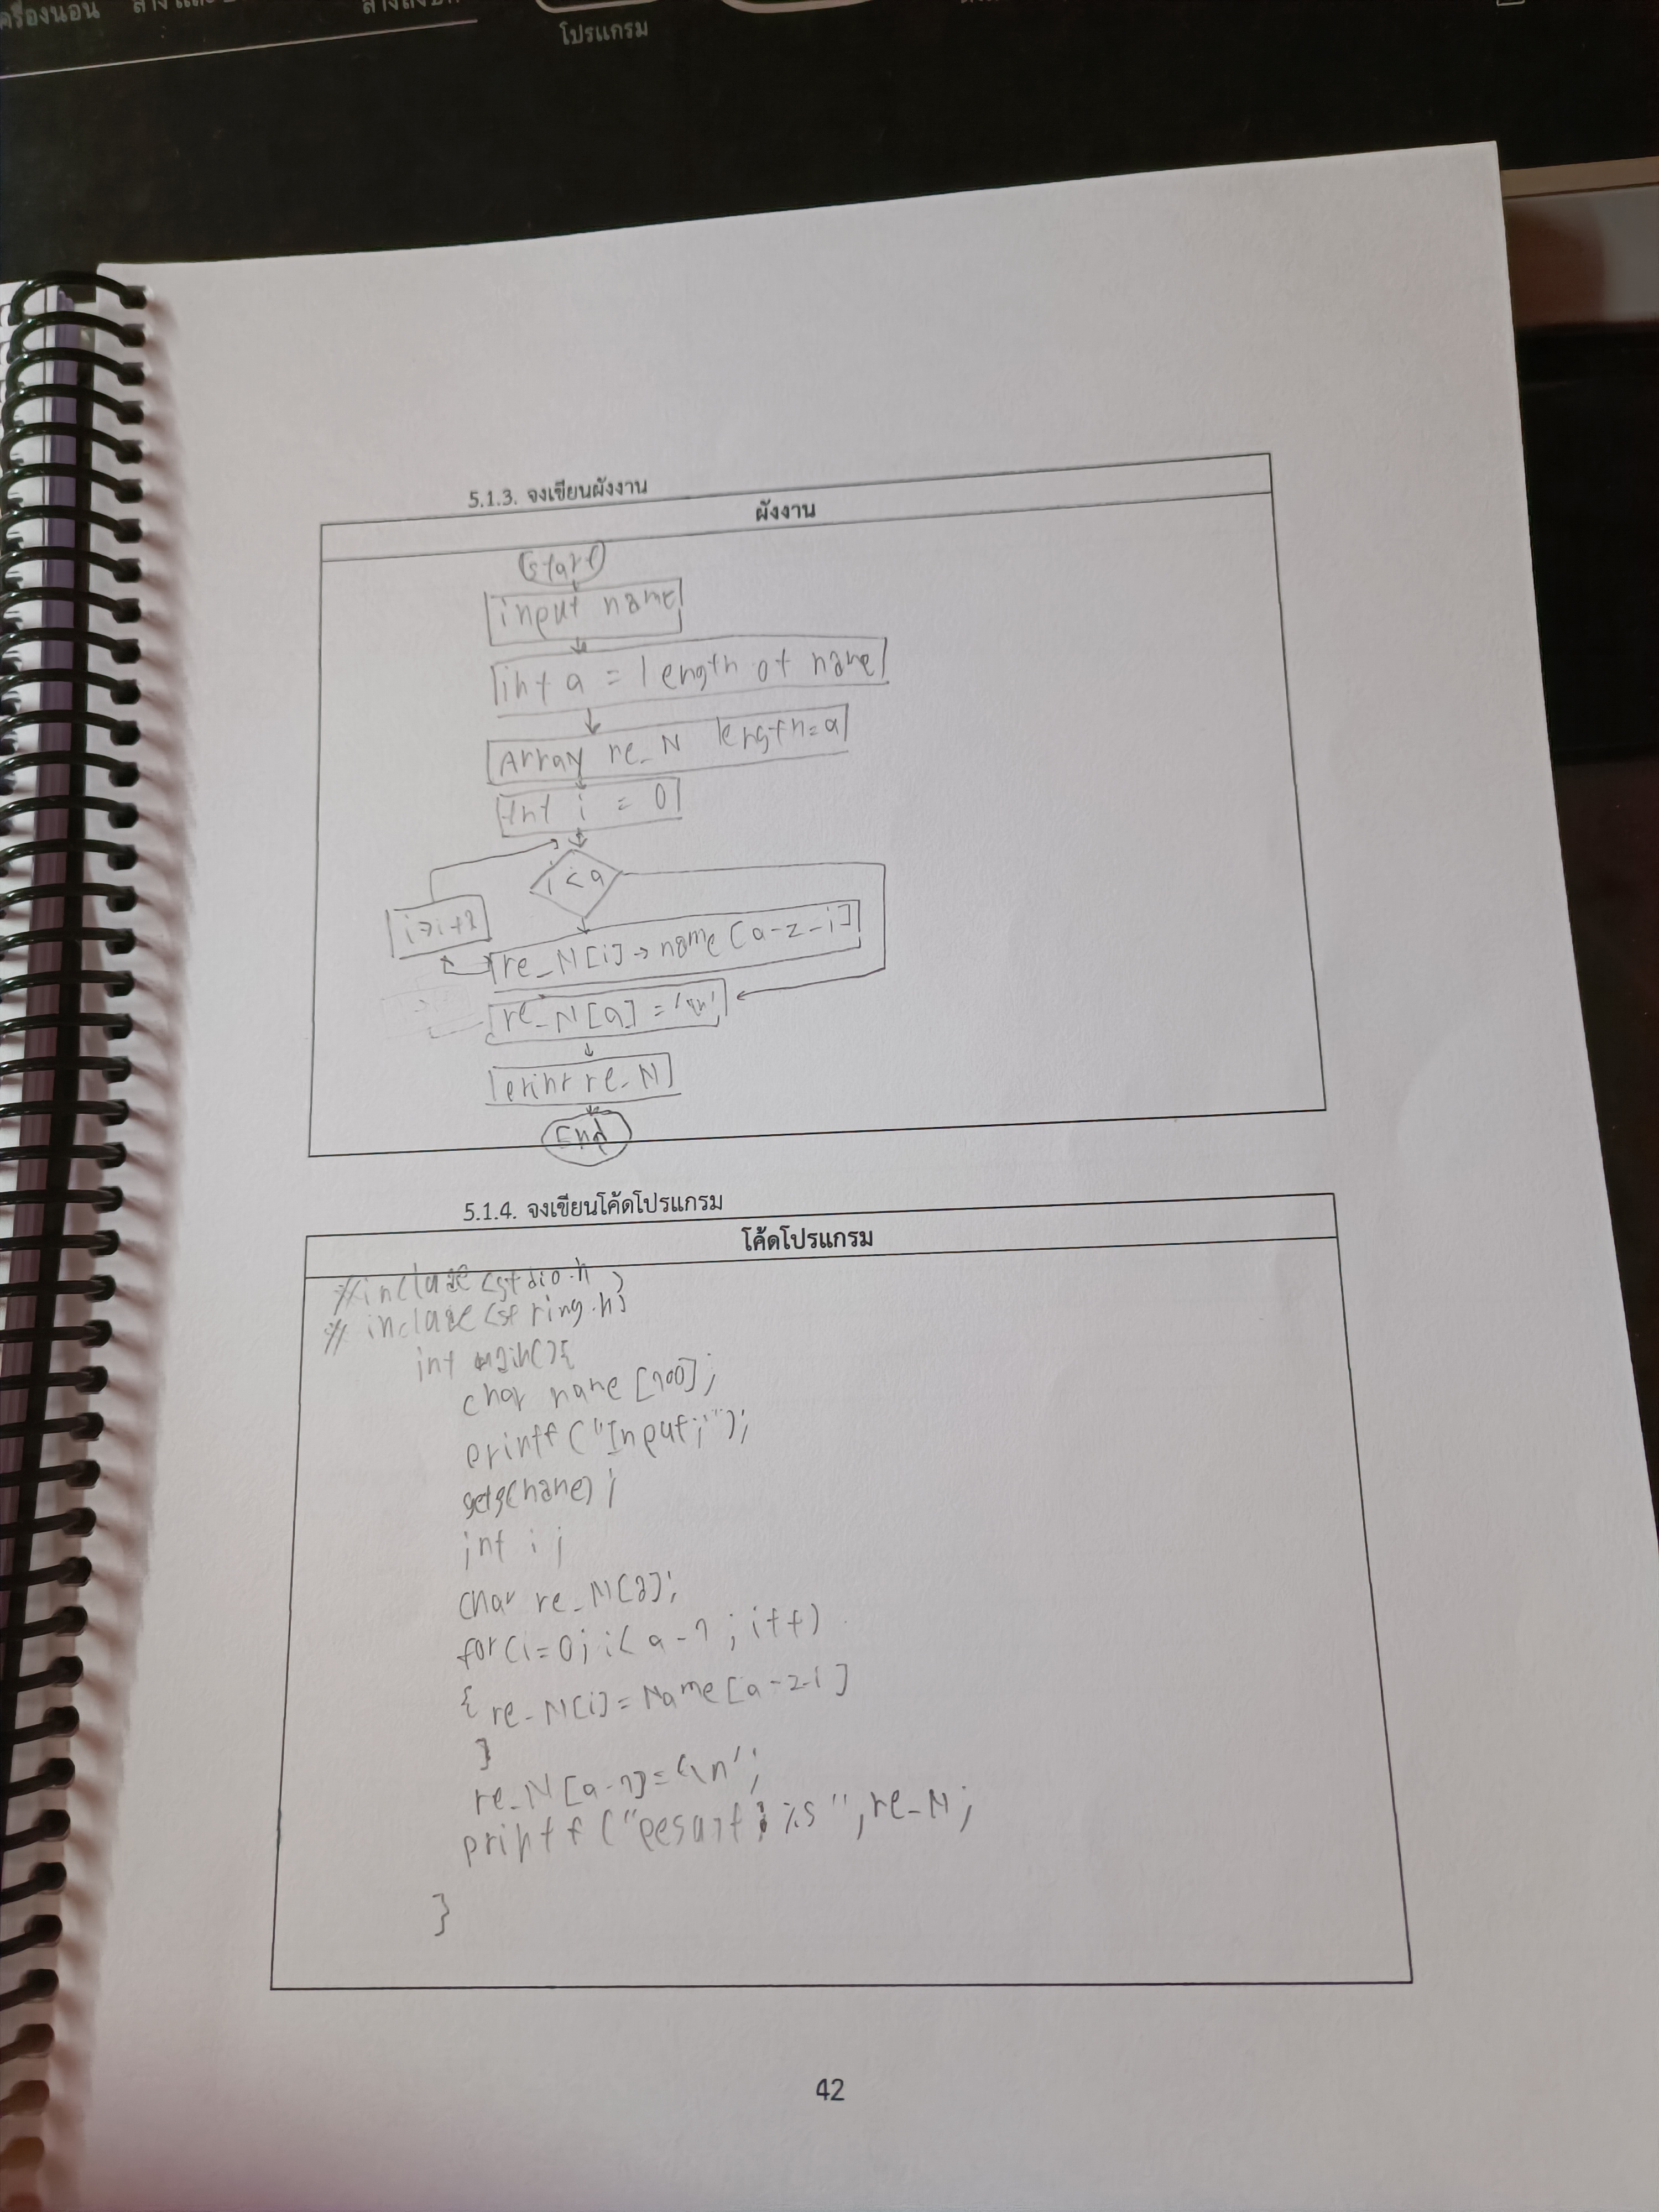 โปรแกรม
5.1.3. จงเขียนผังงาน
ผังงาน
start
input name
int a = length of name
Array re_N length=a
int i = 0
i < a
i→i+1
re_N[i]→name[a-2-i]
re_N[a]='\n'
print re_N
End
5.1.4. จงเขียนโค้ดโปรแกรม
โค้ดโปรแกรม
#include <stdio.h>
#include <string.h>
int main(){
char name [100];
printf("Input;");
gets(name);
int i;
char re_N[a];
for(i=0; i< a-1; i++)
{ re_N[i]=Name[a-2-i]
}
re_N[a-1]='\n';
printf ("Result: %s",re_N;
}
42